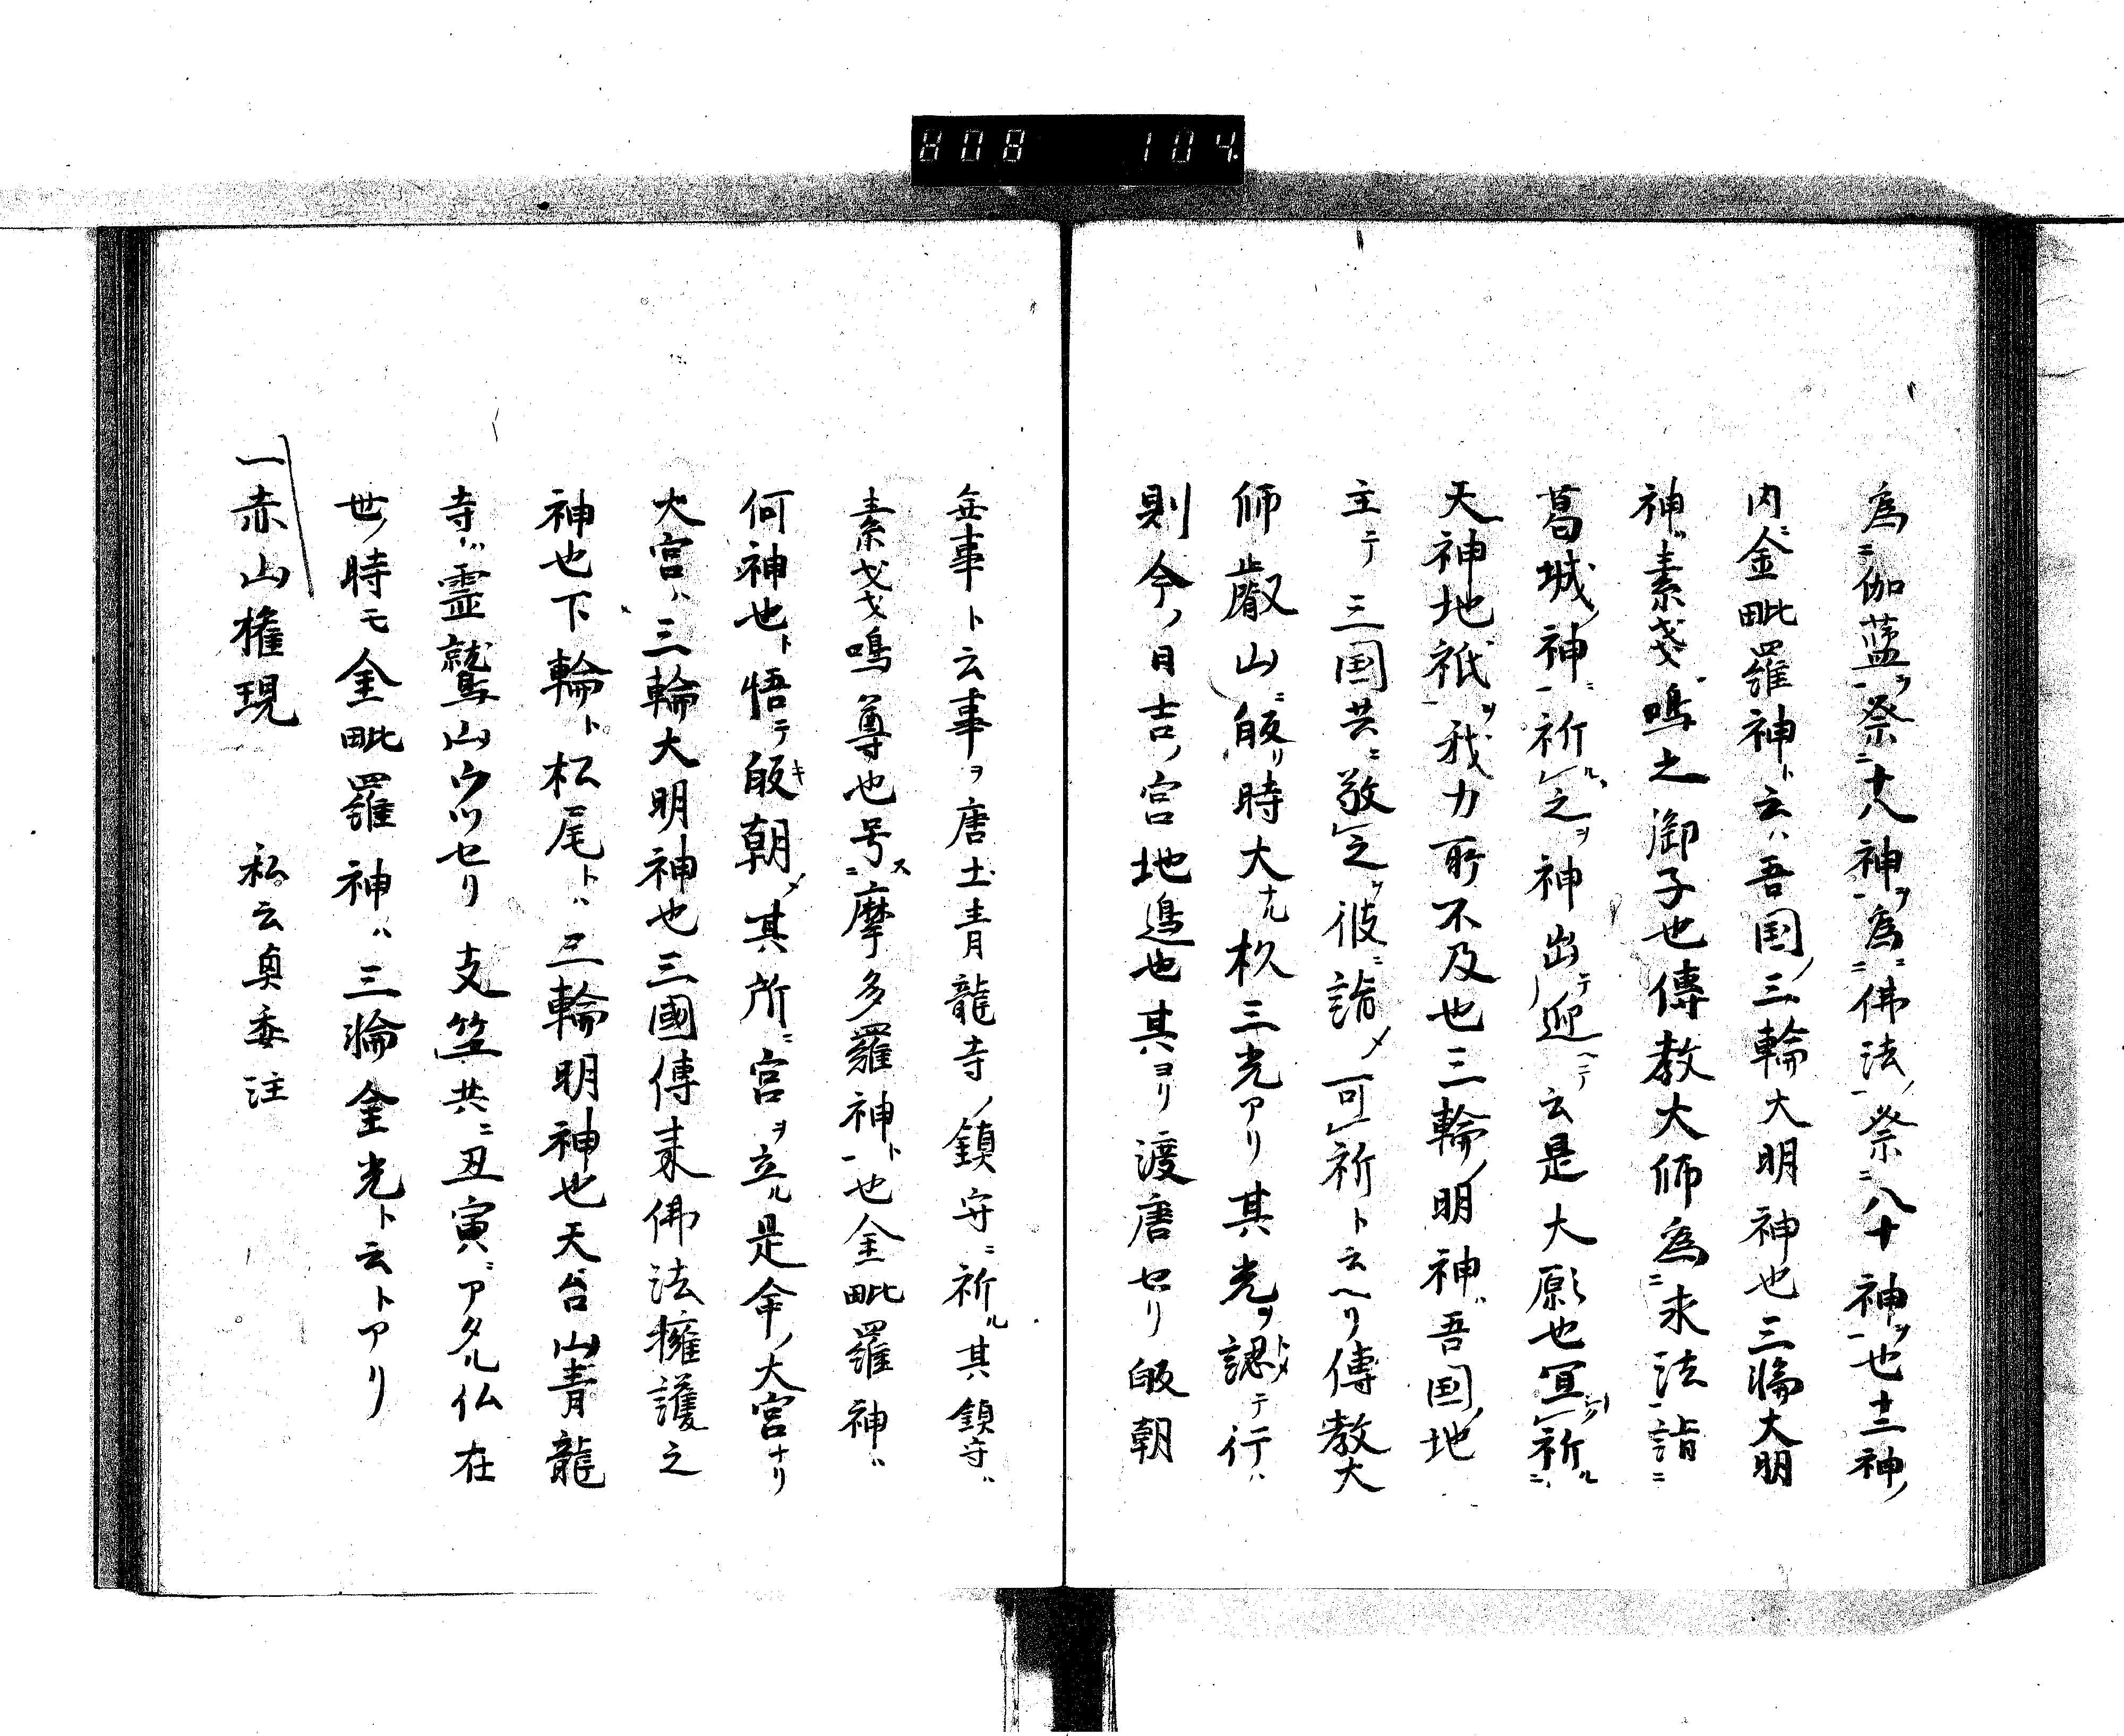 808 104
為ニ伽藍ヲ一祭ニ十八神ヲ一為ニ佛法ノ一祭ニ八十神ヲ一也十二神ノ
内ニ金毗羅神ト云ハ吾国ノ三輪大明神也三輪大明
神ハ素戔嗚之御子也傳教大師為ニ求法一詣ニ
葛城ノ神ニ一祈ルレ之ヲ神出テ迎ヘテ云是大願也冝レ祈ル
天神地祇ヲ一我力所不及也三輪ノ明神ハ吾国ノ地
主ニテ三国共ニ敬レ之ヲ彼ニ詣メ可レ祈ト云ヘリ傳教大
師叡山ニ皈リ時大ナル杉三光アリ其光ヲ認トメテ行ハ
則今ノ日吉ノ宮地邉也其ヨリ渡唐セリ皈朝
無事ト云事ヲ唐土青龍寺ノ鎮守ニ祈ル其鎮守ハ
素戔嗚尊也号ス摩多羅神ト一也金毗羅神ハ
何神也ト悟テ皈キ朝メ其所ニ宮ヲ立ル是今ノ大宮ナリ
大宮ハ三輪大明神也三國傳来佛法擁護之
神也下輪ト松尾トハ三輪明神也天台山青龍
寺ハ霊鷲山ウツセリ支竺共ニ丑寅ニアタル仏在
世ノ時モ金毗羅神ハ三輪金光ト云トアリ
一赤山権現 私云奥委注